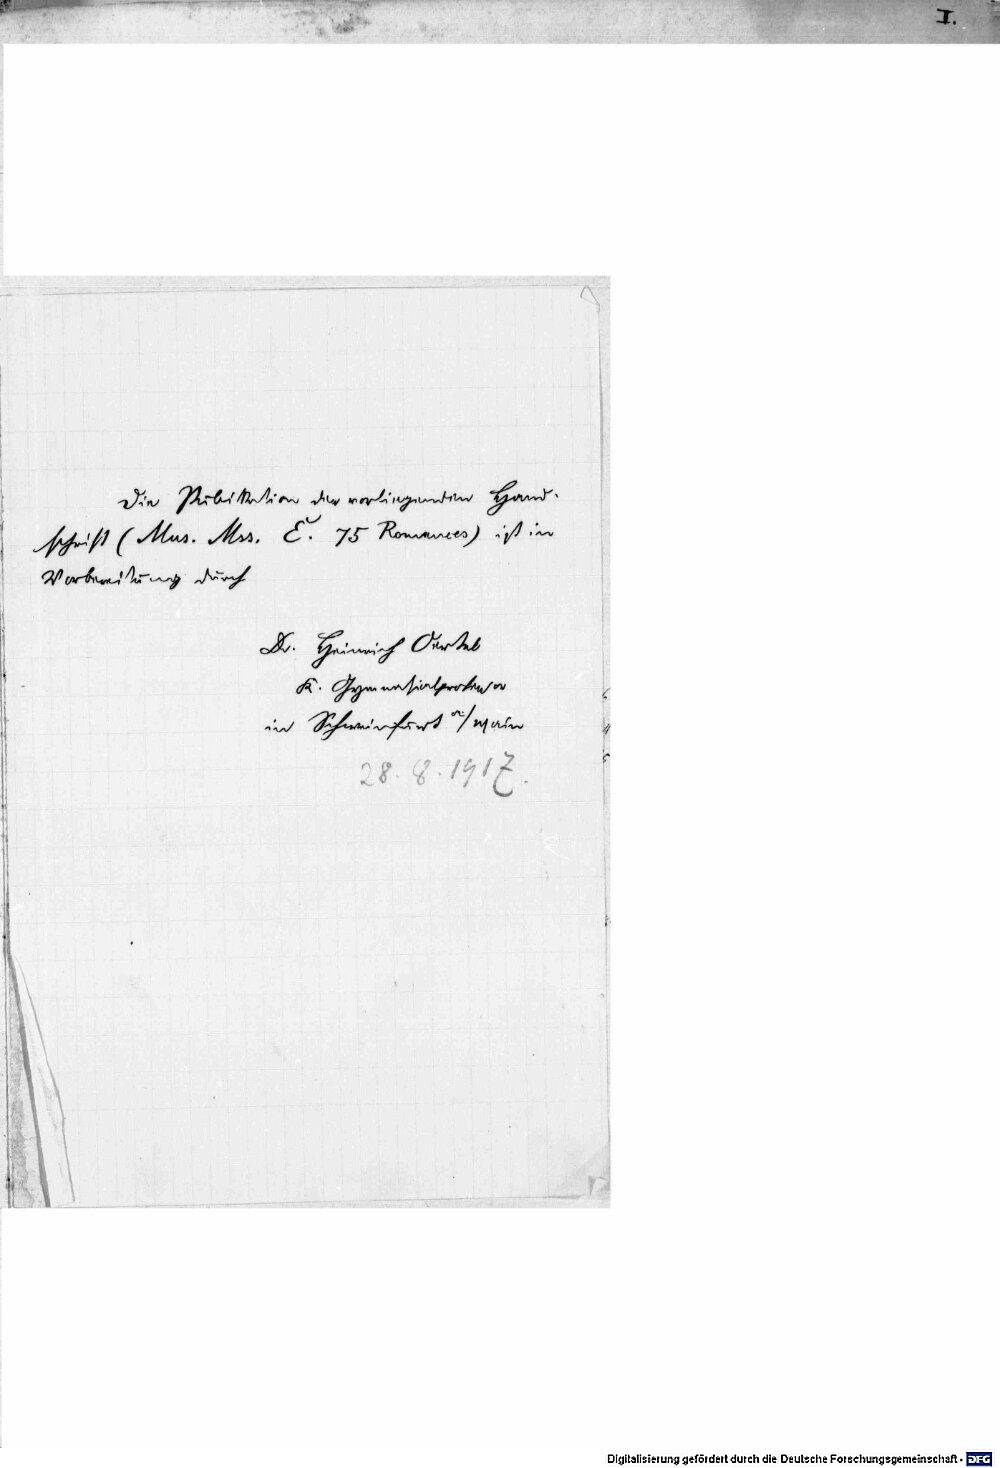 I.
Die Publikation der vorliegenden Hand-
schrift (Mus. Mss. E. 75 Romances) ist in
Vorbereitung durch
Dr. Heinrich Oertel
K. Gymnasialprofessor
in Schweinfurt a/Main
28. 8. 1917.
Digitalisierung gefördert durch die Deutsche Forschungsgemeinschaft - DFG